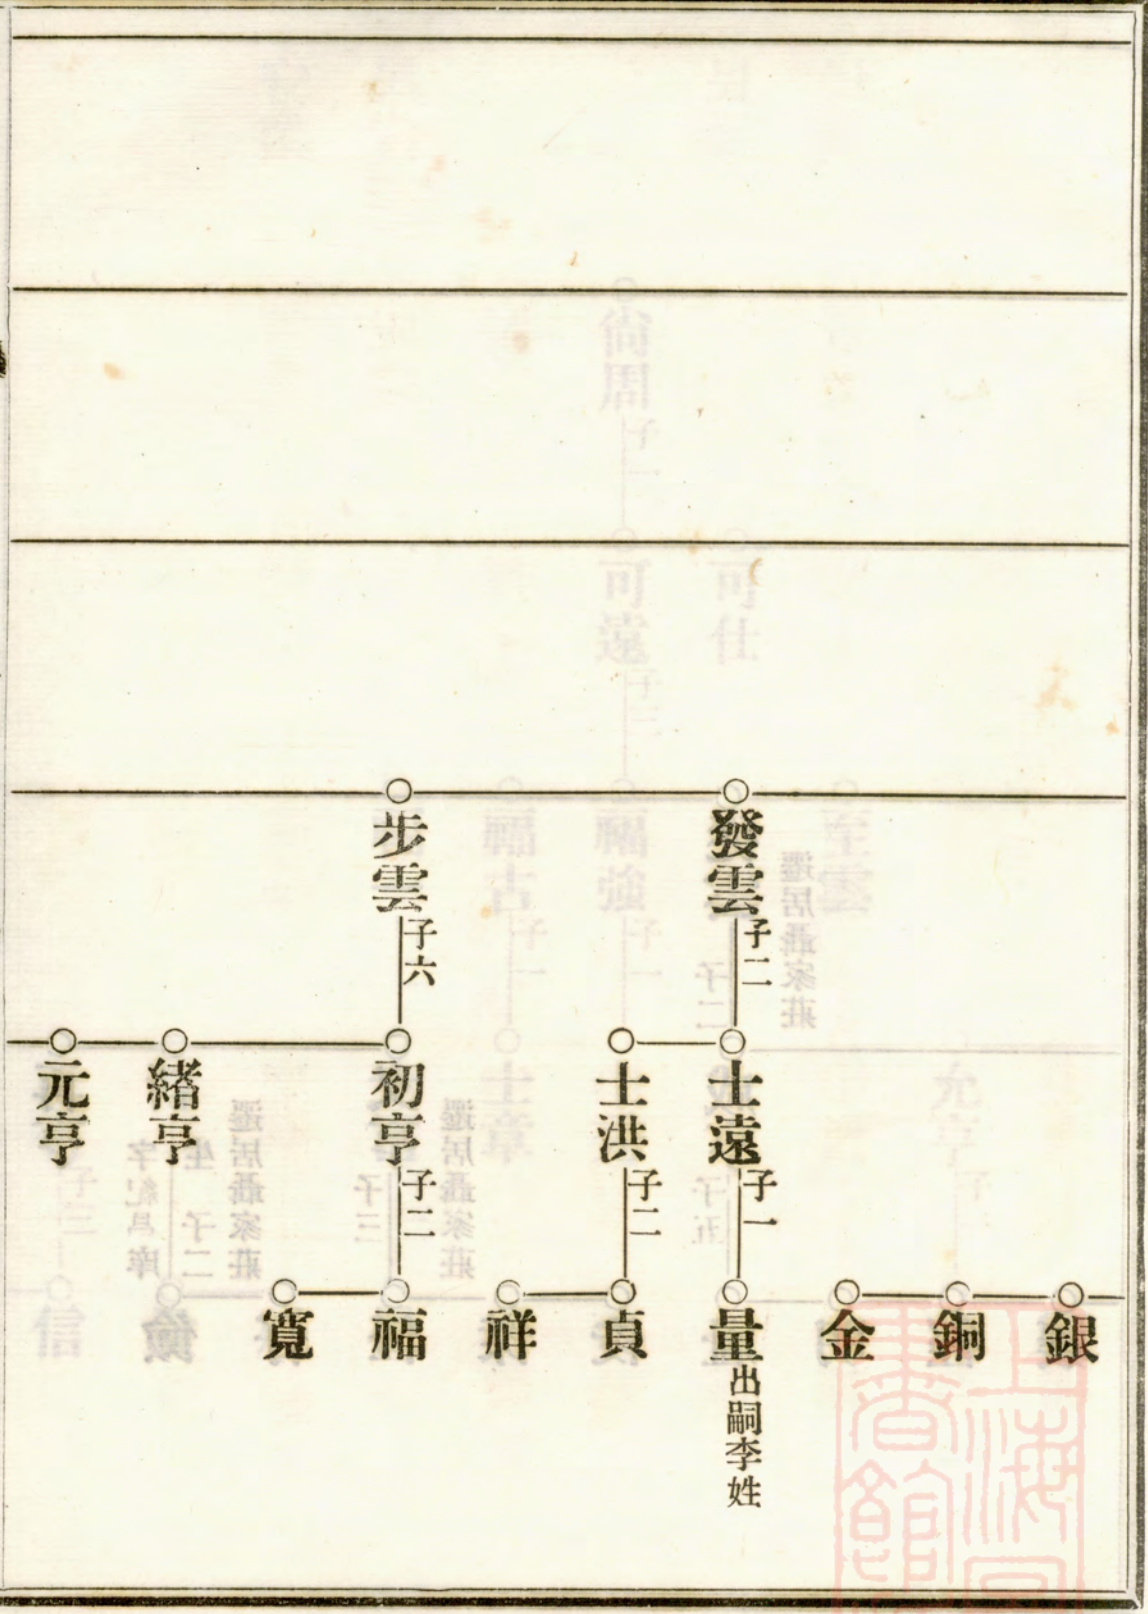 發雲
子二
步雲
子六
士遠
子一
士洪
子二
初亨
子二
緒亨
元亨
銀
銅
金
量
出嗣李姓
貞
祥
福
寬